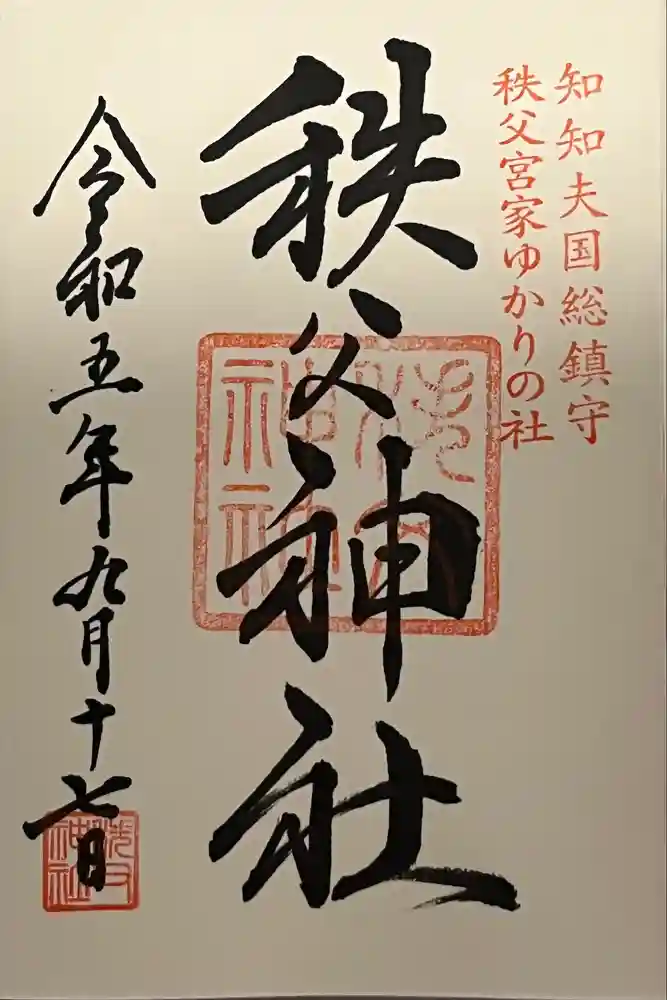 知知夫国総鎮守
秩父宮家ゆかりの社
秩父神社
秩父神社
令和五年九月十七日
秩父神社